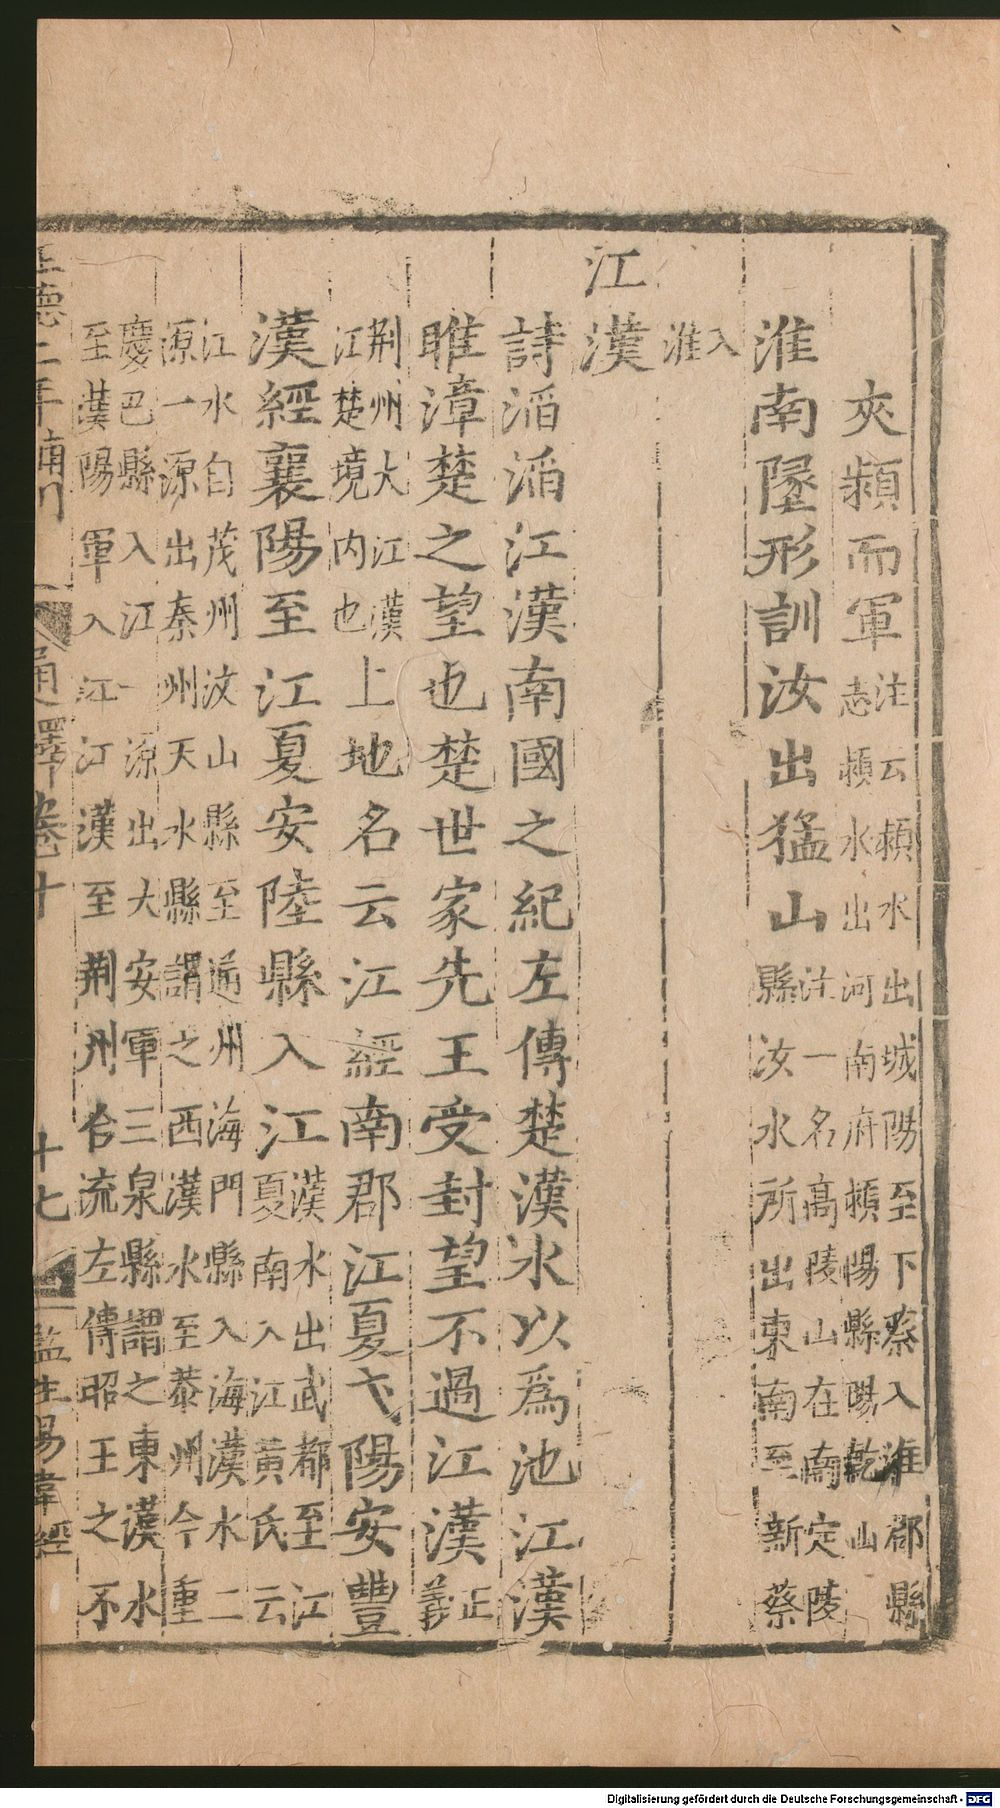 夾潁而軍注云潁水出城陽至下蔡入淮郡縣志潁水出河南府潁陽縣陽乾山
淮南墬形訓汝出猛山注一名高陵山在南定陵縣汝水所出東南至新蔡
入淮
江漢
詩滔滔江漢南國之紀左傳楚漢水以爲池江漢
睢漳楚之望也楚世家先王受封望不過江漢正義
荆州大江漢江楚境内也上地名云江經南郡江夏弋陽安豐
漢經襄陽至江夏安陸縣入江漢水出武都至江夏南入江黄氏云
江水自茂州汶山縣至通州海門縣入海漢水二源一源出秦州天水縣謂之西漢水至恭州今重
慶巴縣入江一源出大安軍三泉縣謂之東漢水至漢陽軍入江江漢至荆州合流左傳昭王之不
正德二年補刊
通釋卷十
十七
監生易韋經
Digitalisierung gefördert durch die Deutsche Forschungsgemeinschaft - DFG